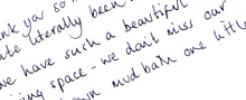 ank you so m
ate literally been
we have such a beautiful
ing space - we don't miss our
own mud bath one little